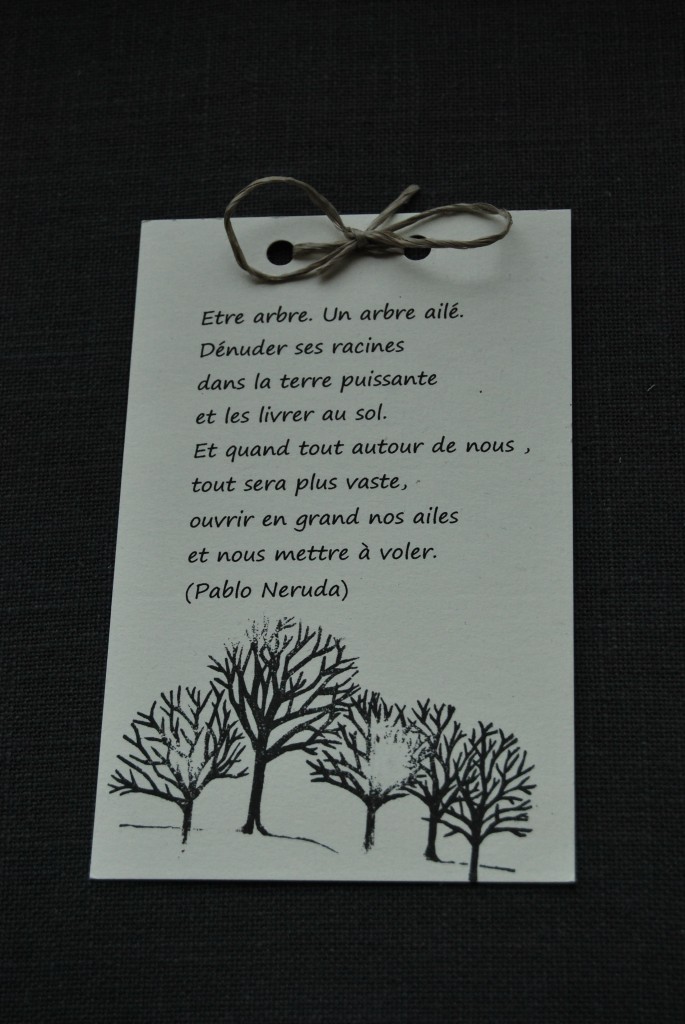 Etre arbre. Un arbre ailé.
Dénuder ses racines
dans la terre puissante
et les livrer au sol.
Et quand tout autour de nous ,
tout sera plus vaste,
ouvrir en grand nos ailes
et nous mettre à voler.
(Pablo Neruda)